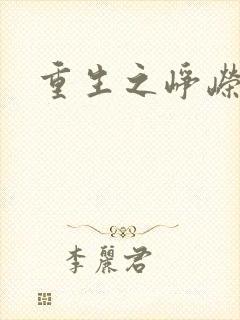 重生之峥嵘
李丽君